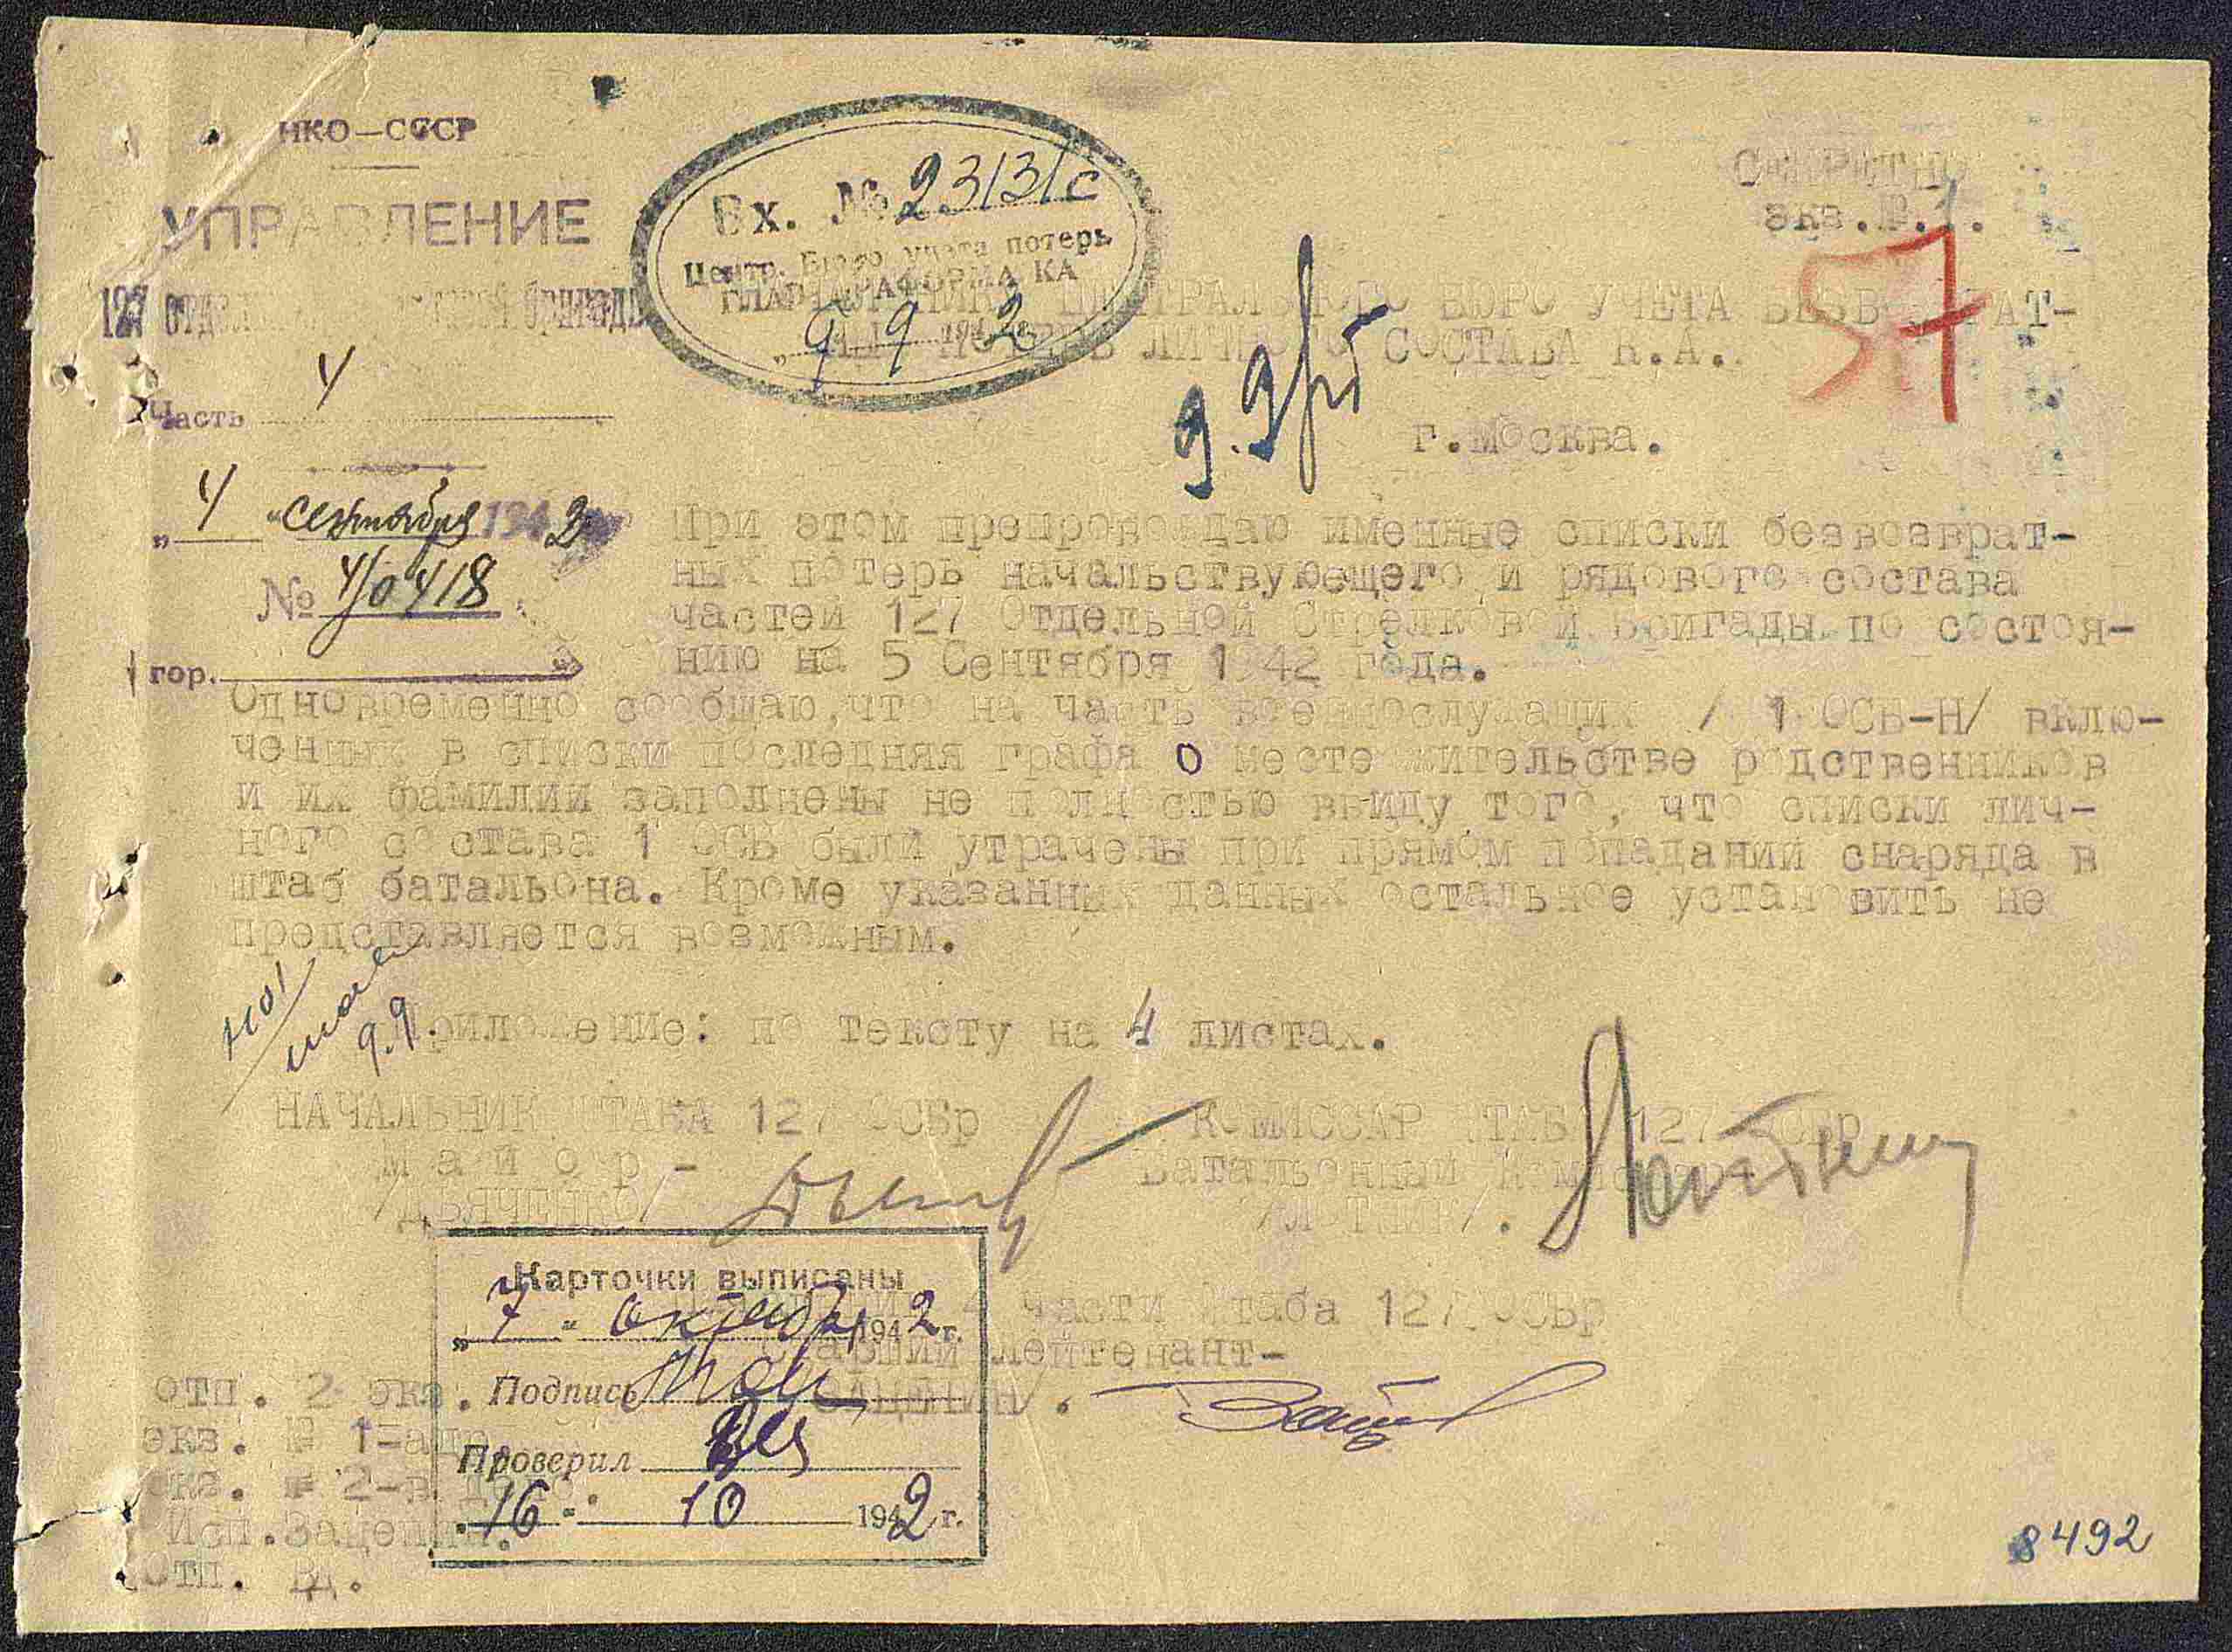 НКО—СССР
УПРАВЛЕНИЕ
127 бригады
Часть 4
„4 " сентября 1942
№ 4/0418
гор.
Вх. № 23131с
Центр. Бюро учета потерь
ГЛАВУПРАФОРМА КА
„9 9 1942
СЕКРЕТНО
экз.№.1.
57
НАЧАЛЬНИКУ ЦЕНТРАЛЬНОГО БЮРО УЧЕТА БЕЗВОЗВРАТ-
НЫХ ПОТЕРЬ ЛИЧНОГО СОСТАВА К.А..
9.9
г.Москва.
При этом препровождаю именные списки безвозврат-
ных потерь начальствующего и рядового состава
частей 127 Отдельной Стрелковой Бригады по состоя-
нию на 5 Сентября 1942 года.
Одновременно сообщаю,что на часть военнослужащих / 1 ОСБ-Н/ вклю-
ченных в списки последняя графа о месте жительстве родственников
и их фамилии заполнены не полностью ввиду того, что списки лич-
ного состава 1 ОСБ были утрачены при прямом попадании снаряда в
штаб батальона. Кроме указанных данных остальное установить не
представляется возможным.
9.9.
Приложение: по тексту на 4 листах.
НАЧАЛЬНИК ШТАБА 127 ОСБр
Майор -
/ДЬЯЧЕНКО/
КОМИССАР ШТАБА 127 ОСБр
Батальонный Комиссар
/ЛЮТКИН/.
4 части Штаба 127 ОСБр
Старший лейтенант-
/ЗАЦЕПИН/.
Карточки выписаны
„7 " октября 1942 г.
Подпись
Проверил
„16 " 10 1942 г.
отп. 2 экз.
экз. № 1-адр.
экз. № 2-в дело.
Исп.Зацепин.
Отп. ВД.
8492